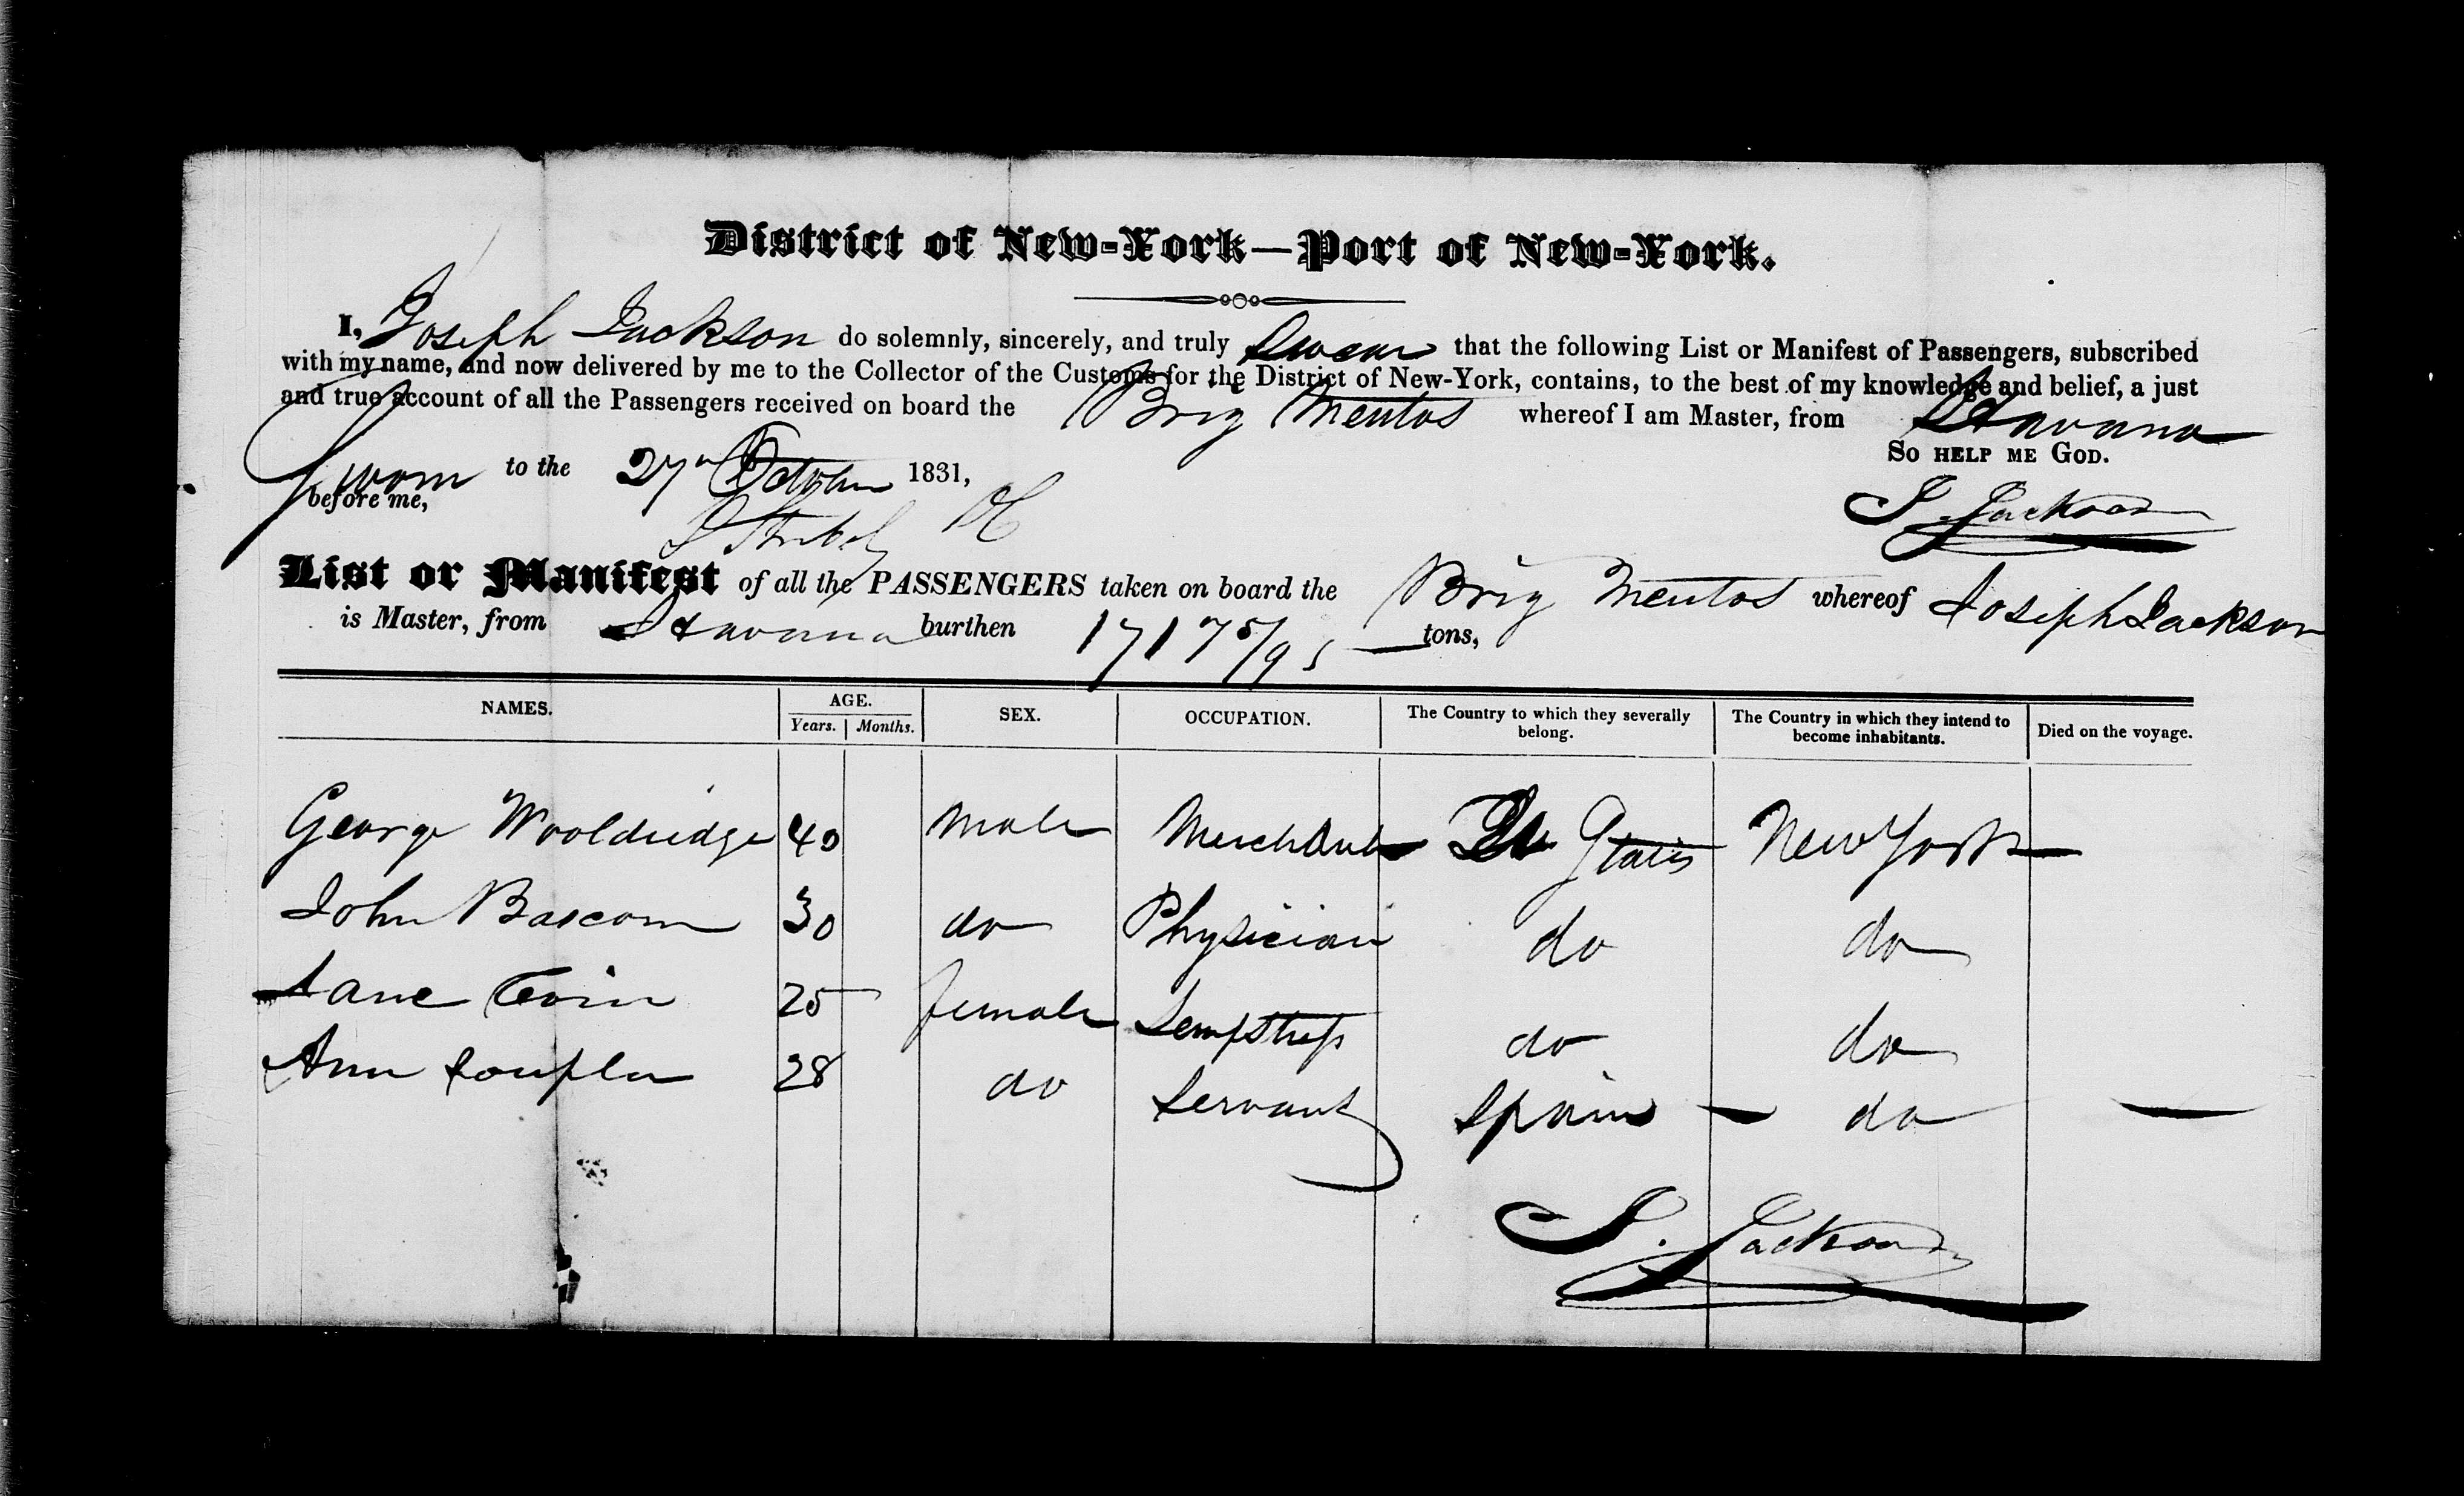 District of New-York—Port of New-York.
I, Joseph Jackson do solemnly, sincerely, and truly Swear that the following List or Manifest of Passengers, subscribed
with my name, and now delivered by me to the Collector of the Customs for the District of New-York, contains, to the best of my knowledge and belief, a just
and true account of all the Passengers received on board the Brig Mentos whereof I am Master, from Havana
So HELP ME GOD.
Sworn to the 27th October 1831,
before me, J. Jackson
List or Manifest of all the PASSENGERS taken on board the Brig Mentos whereof Joseph Jackson
is Master, from Havana burthen 171 75/95 tons,
NAMES. AGE. SEX. OCCUPATION. The Country to which they severally belong. The Country in which they intend to become inhabitants. Died on the voyage.
Years. Months.
George Wooldridge 40 Male Merchant U States New York
John Bascom 30 do Physician do do
Jane 25 female Sempstress do do
Ann 28 do Servant Spain - do —
J. Jackson